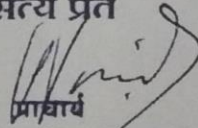 सत्य प्रत
प्राचार्य